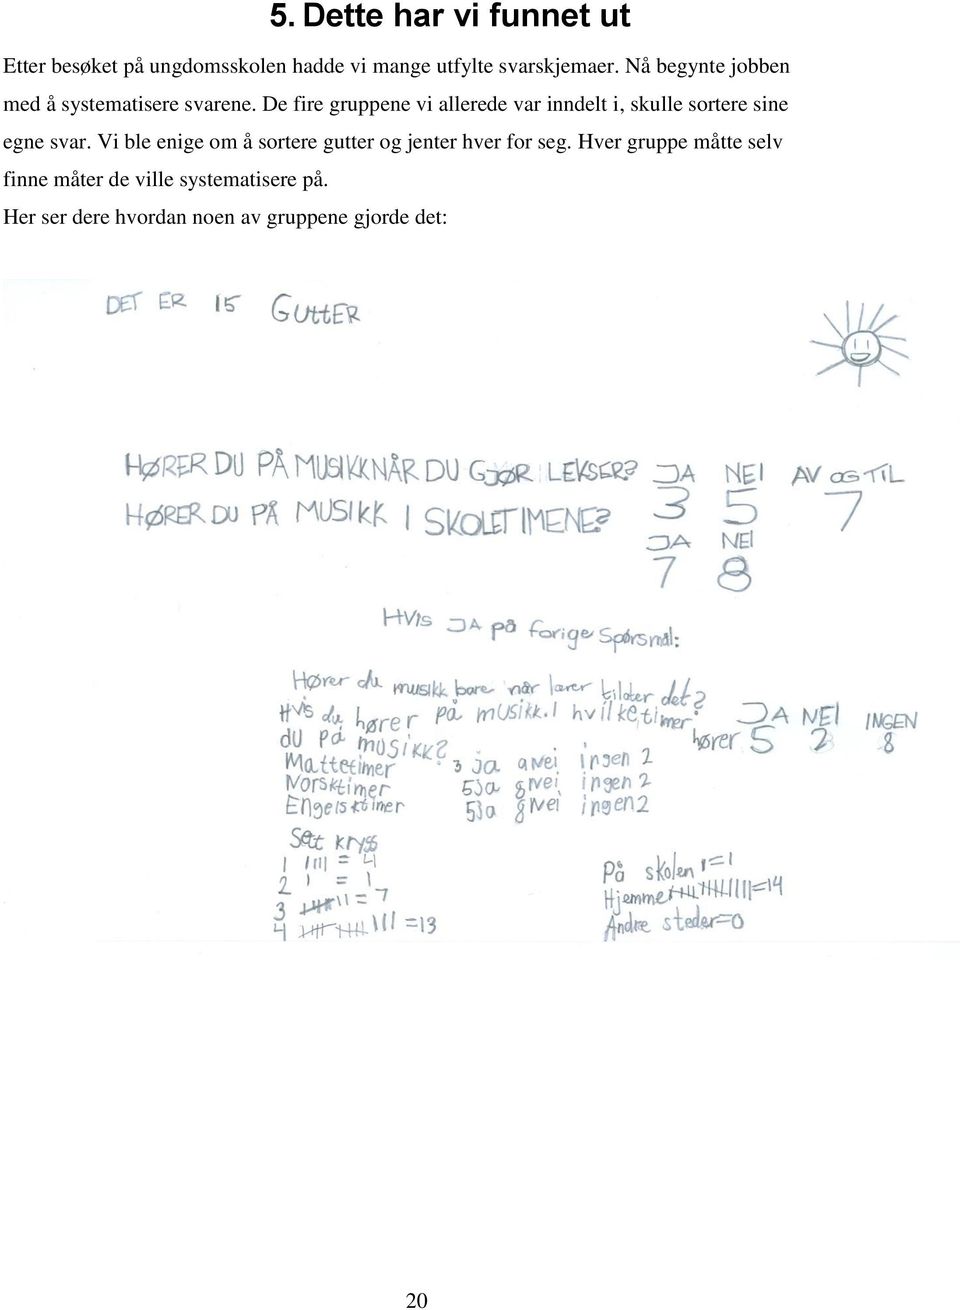 5. Dette har vi funnet ut
Etter besøket på ungdomsskolen hadde vi mange utfylte svarskjemaer. Nå begynte jobben
med å systematisere svarene. De fire gruppene vi allerede var inndelt i, skulle sortere sine
egne svar. Vi ble enige om å sortere gutter og jenter hver for seg. Hver gruppe måtte selv
finne måter de ville systematisere på.
Her ser dere hvordan noen av gruppene gjorde det:
DET ER 15 GUttER
HØRER DU PÅ MUSIKK NÅR DU GJØR LEKSER? JA NEI AV OG TIL
3 5 7
HØRER DU PÅ MUSIKK I SKOLETIMENE?
JA NEI
7 8
HVis JA på forige Spørsmål:
Hører du musikk bare når lærer tilater det?
JA NEI INGEN
hører 5 2 8
HVis du hører på musikk. I hvilke timer
du på musikk?
Mattetimer 3 ja 9 Nei ingen 2
Norsktimer 5 ja 8 Nei ingen 2
Engelsktimer 5 ja 8 Nei ingen 2
Sett kryss
1 IIII = 4
2 I = 1
3 IIIII II = 7
4 IIIII IIIII III = 13
På skolen I = 1
Hjemme IIIII IIIII IIII = 14
Andre steder = 0
20